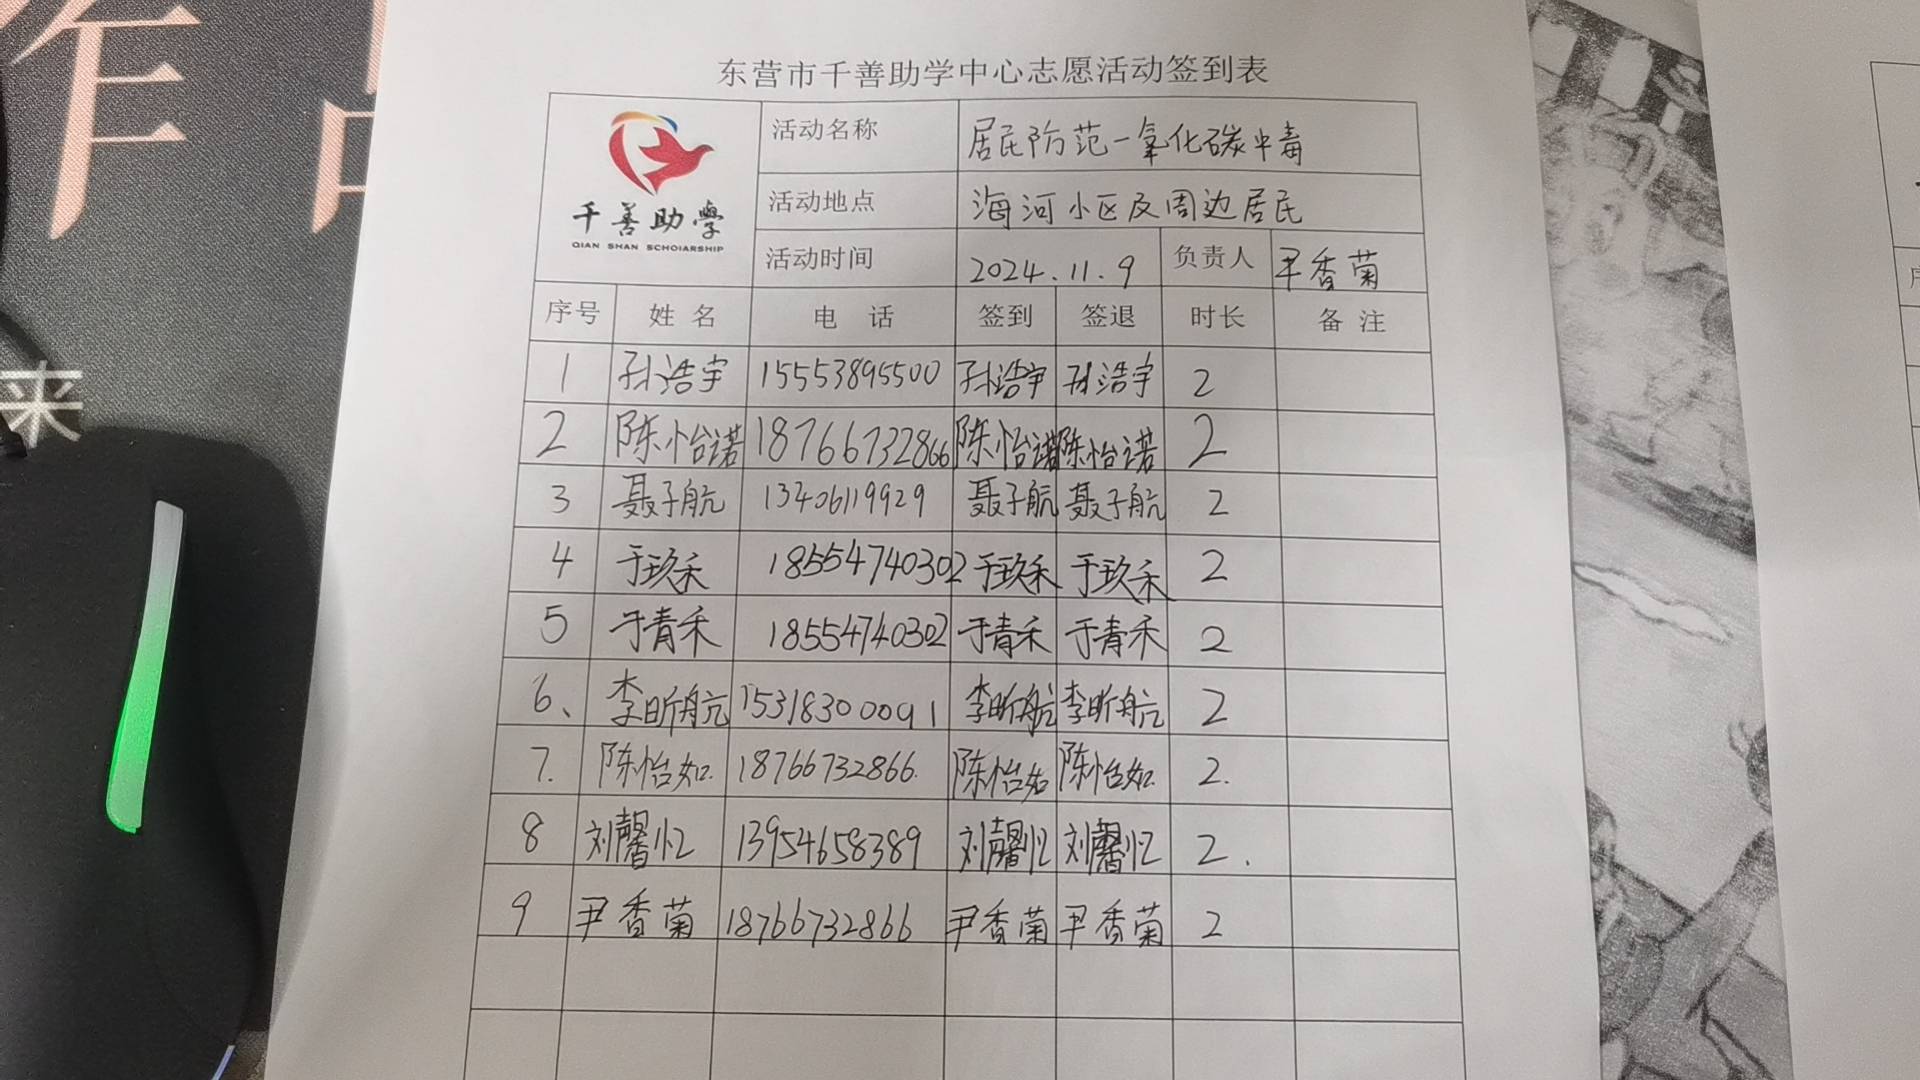 来
东营市千善助学中心志愿活动签到表
千善助学
QIAN SHAN SCHOIARSHIP
活动名称 居民防范一氧化碳中毒
活动地点 海河小区及周边居民
活动时间 2024.11.9 负责人 尹香菊
序号 姓名 电话 签到 签退 时长 备注
1 孙浩宇 15553895500 孙浩宇 孙浩宇 2
2 陈怡诺 18766732866 陈怡诺 陈怡诺 2
3 聂子航 13406119929 聂子航 聂子航 2
4 于玖禾 18554740302 于玖禾 于玖禾 2
5 于青禾 18554740302 于青禾 于青禾 2
6、 李昕航 15318300091 李昕航 李昕航 2
7. 陈怡如. 18766732866. 陈怡如 陈怡如. 2.
8 刘馨忆 13954658389 刘馨忆 刘馨忆 2.
9 尹香菊 18766732866 尹香菊 尹香菊 2